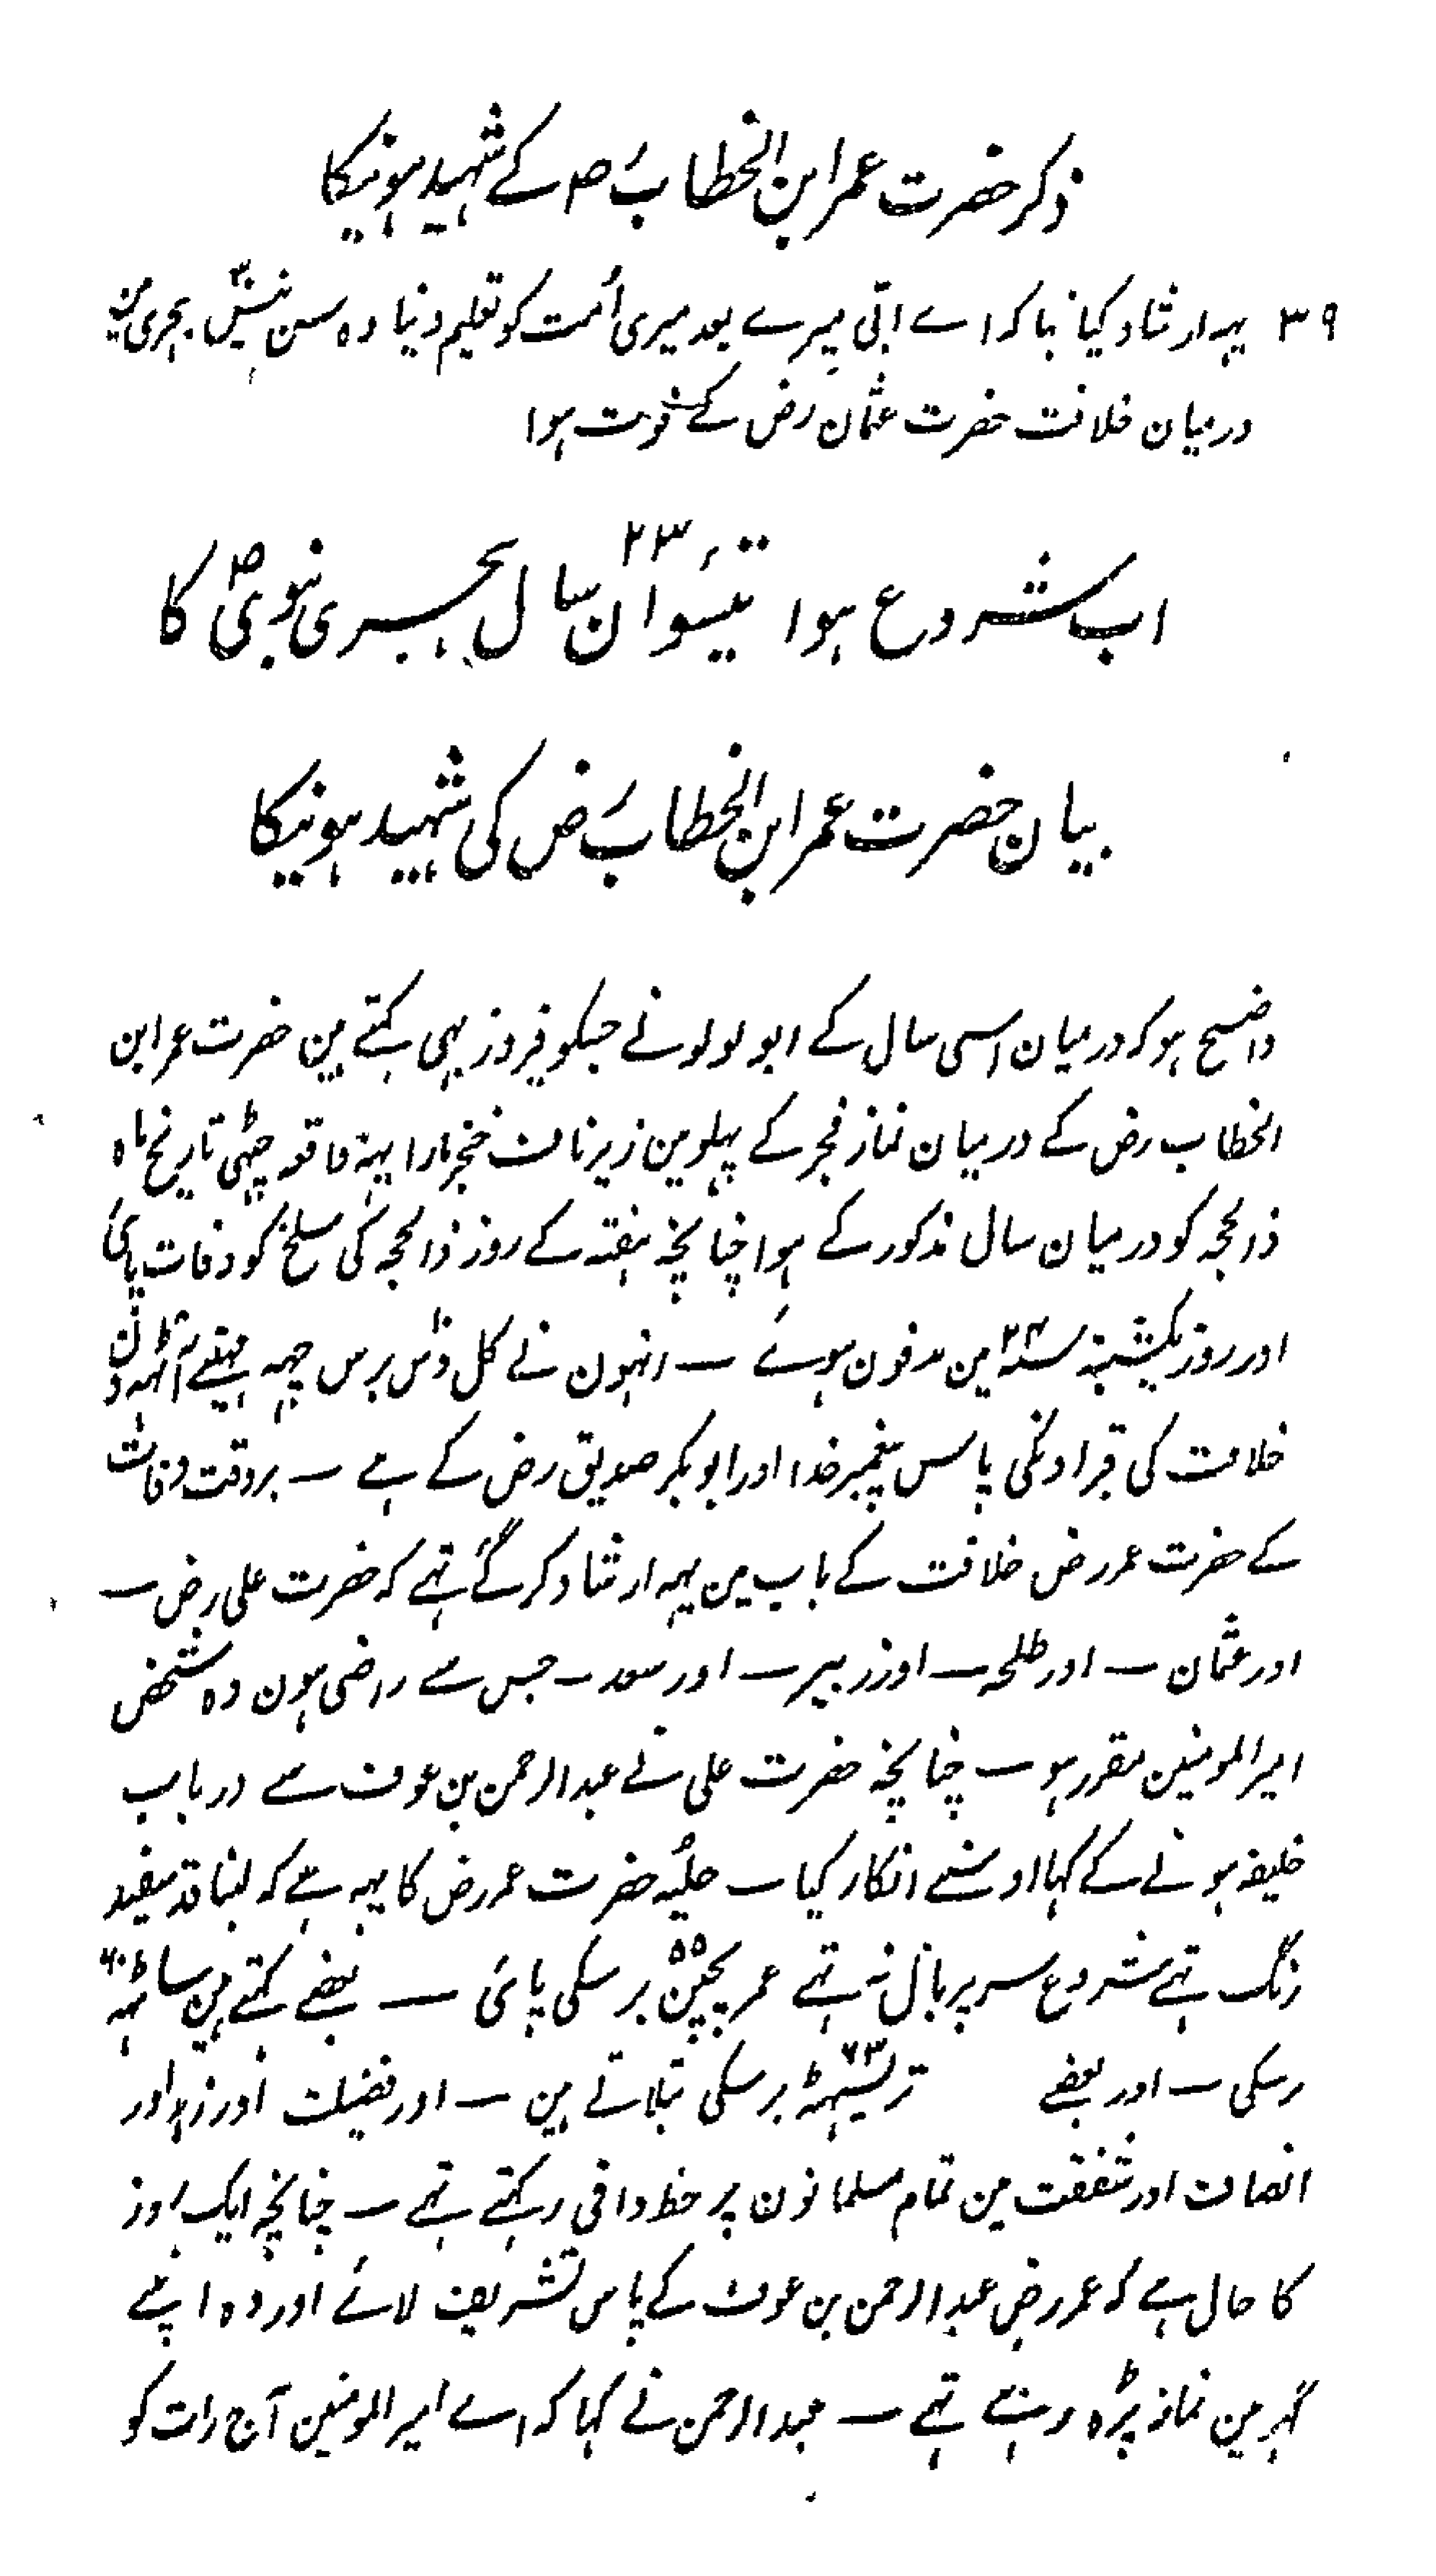 ذکر حضرت عمر ابن الخطابؓ کے شہید ہونیکا
۳۹ یہہ ارشاد کیا تہا کہ اے ابّی میرے بعد میری اُمت کو تعلیم دینا وہ سن تیسؔ ہجری مین
درمیان خلافت حضرت عثمان رض کے فوت ہوا
اب شروع ہوا تیئسوان ۲۳ سال ہجری نبویؐ کا
بیان حضرت عمر ابن الخطاب رض کی شہید ہونیکا
واضح ہو کہ درمیان اسی سال کے ابو لولو نے جسکو فیروز بہی کہتے ہین حضرت عمر ابن
الخطاب رض کے درمیان نماز فجر کے پہلو مین زیر ناف خنجر مارا یہہ واقعہ چہٹی تاریخ ماہ
ذالحجہ کو درمیان سال مذکور کے ہوا چنانچہ ہفتہ کے روز ذالحجہ کی سلخ کو وفات پائی
اور روز یکشنبہ سنہ ۲۴ مین مدفون ہوئے — انہون نے کل دس برس چہہ مہینے آٹہہ دن
خلافت کی قبر اونکی پاس پیغمبر خدا اور ابو بکر صدیق رض کے ہے — بروقت وفات
کے حضرت عمر رض خلافت کے باب مین یہہ ارشاد کر گئے تہے کہ حضرت علی رض —
اور عثمان — اور طلحہ — اور زبیر — اور سعد — جس سے راضی ہون وہ شخص
امیر المومنین مقرر ہو — چنانچہ حضرت علی نے عبد الرحمن بن عوف سے درباب
خلیفہ ہونے کے کہا اوسنے انکار کیا — حلیُہ حضرت عمر رض کا یہہ ہے کہ لنبا قد سفید
رنگ تہے شروع سر پر بال نہ تہے عمر پچپن ۵۵ برسکی پائی — بعضے کہتے ہین ساٹہہ ۶۰
برسکی — اور بعضے تریسہٹہ ۶۳ برسکی بتلاتے ہین — اور فضیلت اور زہد اور
انصاف اور شفقت مین تمام مسلمانون پر حظ وافی رکہتے تہے — چنانچہ ایک روز
کا حال ہے کہ عمر رض عبد الرحمن بن عوف کے پاس تشریف لائے اور وہ اپنے
گہر مین نماز پڑہ رہے تہے — عبد الرحمن نے کہا کہ اے امیر المومنین آج رات کو